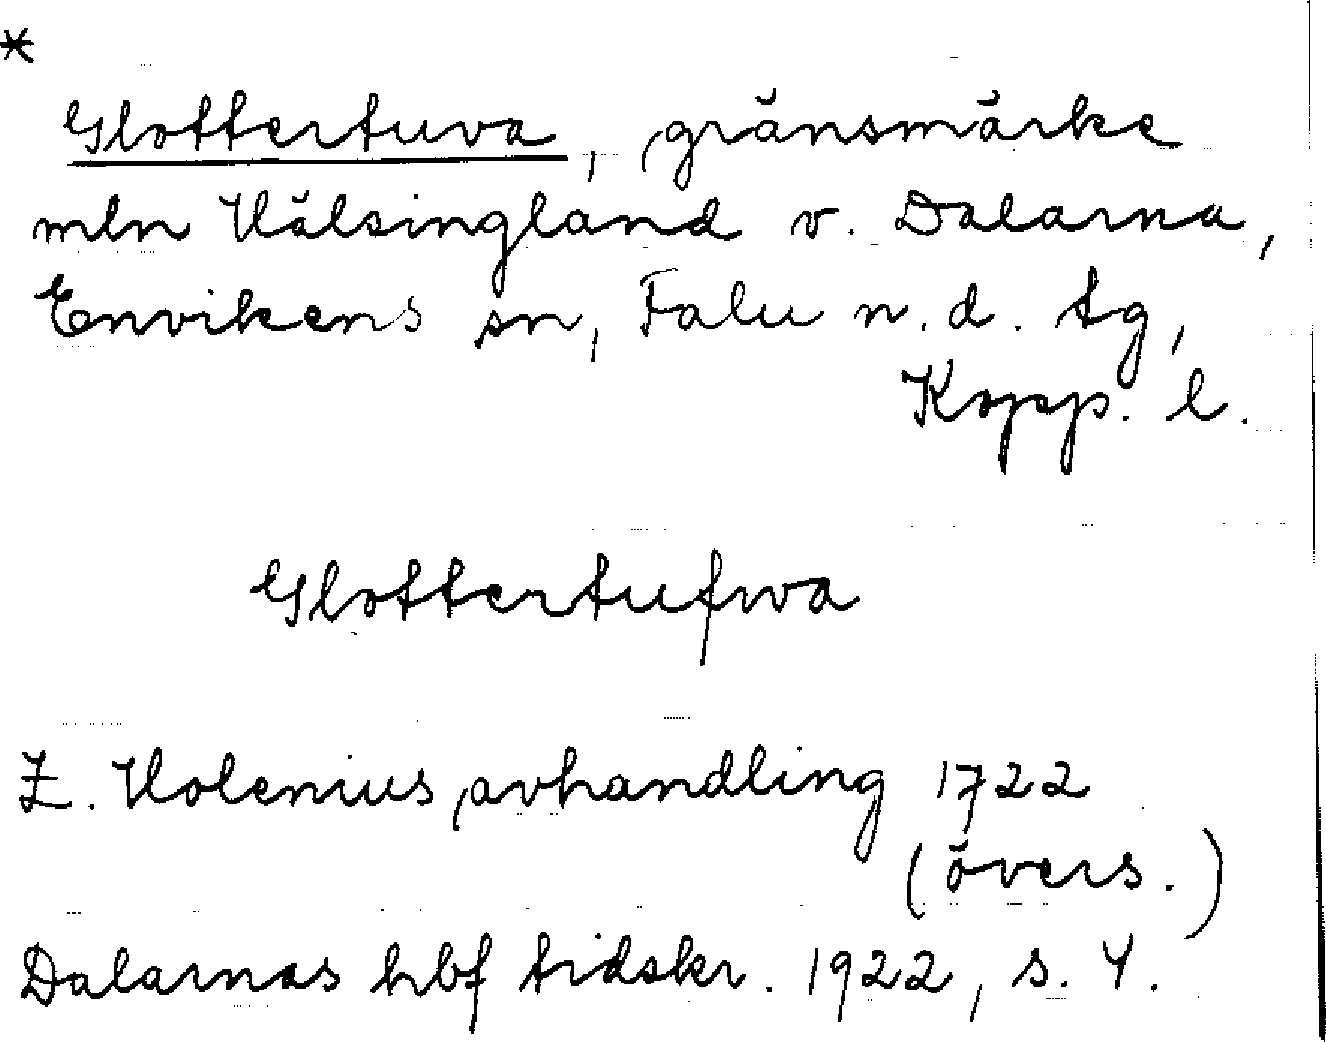 *
Glottertuva, gränsmärke
mln Hälsingland v. Dalarna,
Envikens sn, Falu n. d. tg,
Kopp. l.
Glottertufwa
Z. Holenius, avhandling 1722
(övers.)
Dalarnas hbf tidskr. 1922, s. 4.